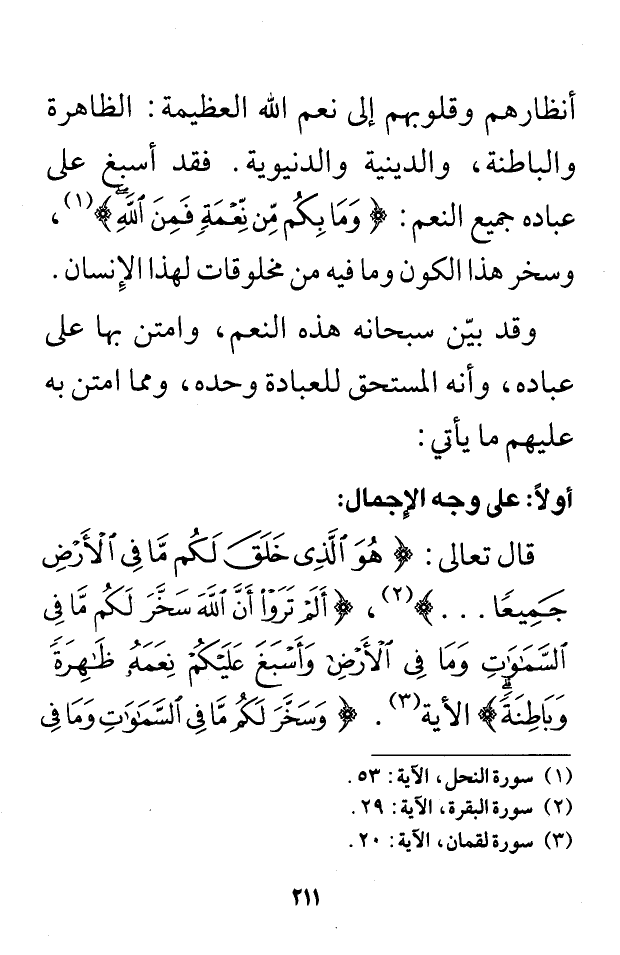 أنظارهم وقلوبهم إلى نعم الله العظيمة: الظاهرة
والباطنة، والدينية والدنيوية. فقد أسبغ على
عباده جميع النعم: ﴿ وَمَا بِكُم مِّن نِّعْمَةٍ فَمِنَ ٱللَّهِۖ ﴾(١)،
وسخر هذا الكون وما فيه من مخلوقات لهذا الإنسان.
وقد بيّن سبحانه هذه النعم، وامتن بها على
عباده، وأنه المستحق للعبادة وحده، ومما امتن به
عليهم ما يأتي:
أولاً: على وجه الإجمال:
قال تعالى: ﴿ هُوَ ٱلَّذِى خَلَقَ لَكُم مَّا فِى ٱلْأَرْضِ
جَمِيعًا . . . ﴾(٢)، ﴿ أَلَمْ تَرَوْا۟ أَنَّ ٱللَّهَ سَخَّرَ لَكُم مَّا فِى
ٱلسَّمَٰوَٰتِ وَمَا فِى ٱلْأَرْضِ وَأَسْبَغَ عَلَيْكُمْ نِعَمَهُۥ ظَٰهِرَةً
وَبَاطِنَةًۗ ﴾ الأية(٣). ﴿ وَسَخَّرَ لَكُم مَّا فِى ٱلسَّمَٰوَٰتِ وَمَا فِى
(١) سورة النحل، الآية: ٥٣.
(٢) سورة البقرة، الآية: ٢٩.
(٣) سورة لقمان، الآية: ٢٠.
٢١١